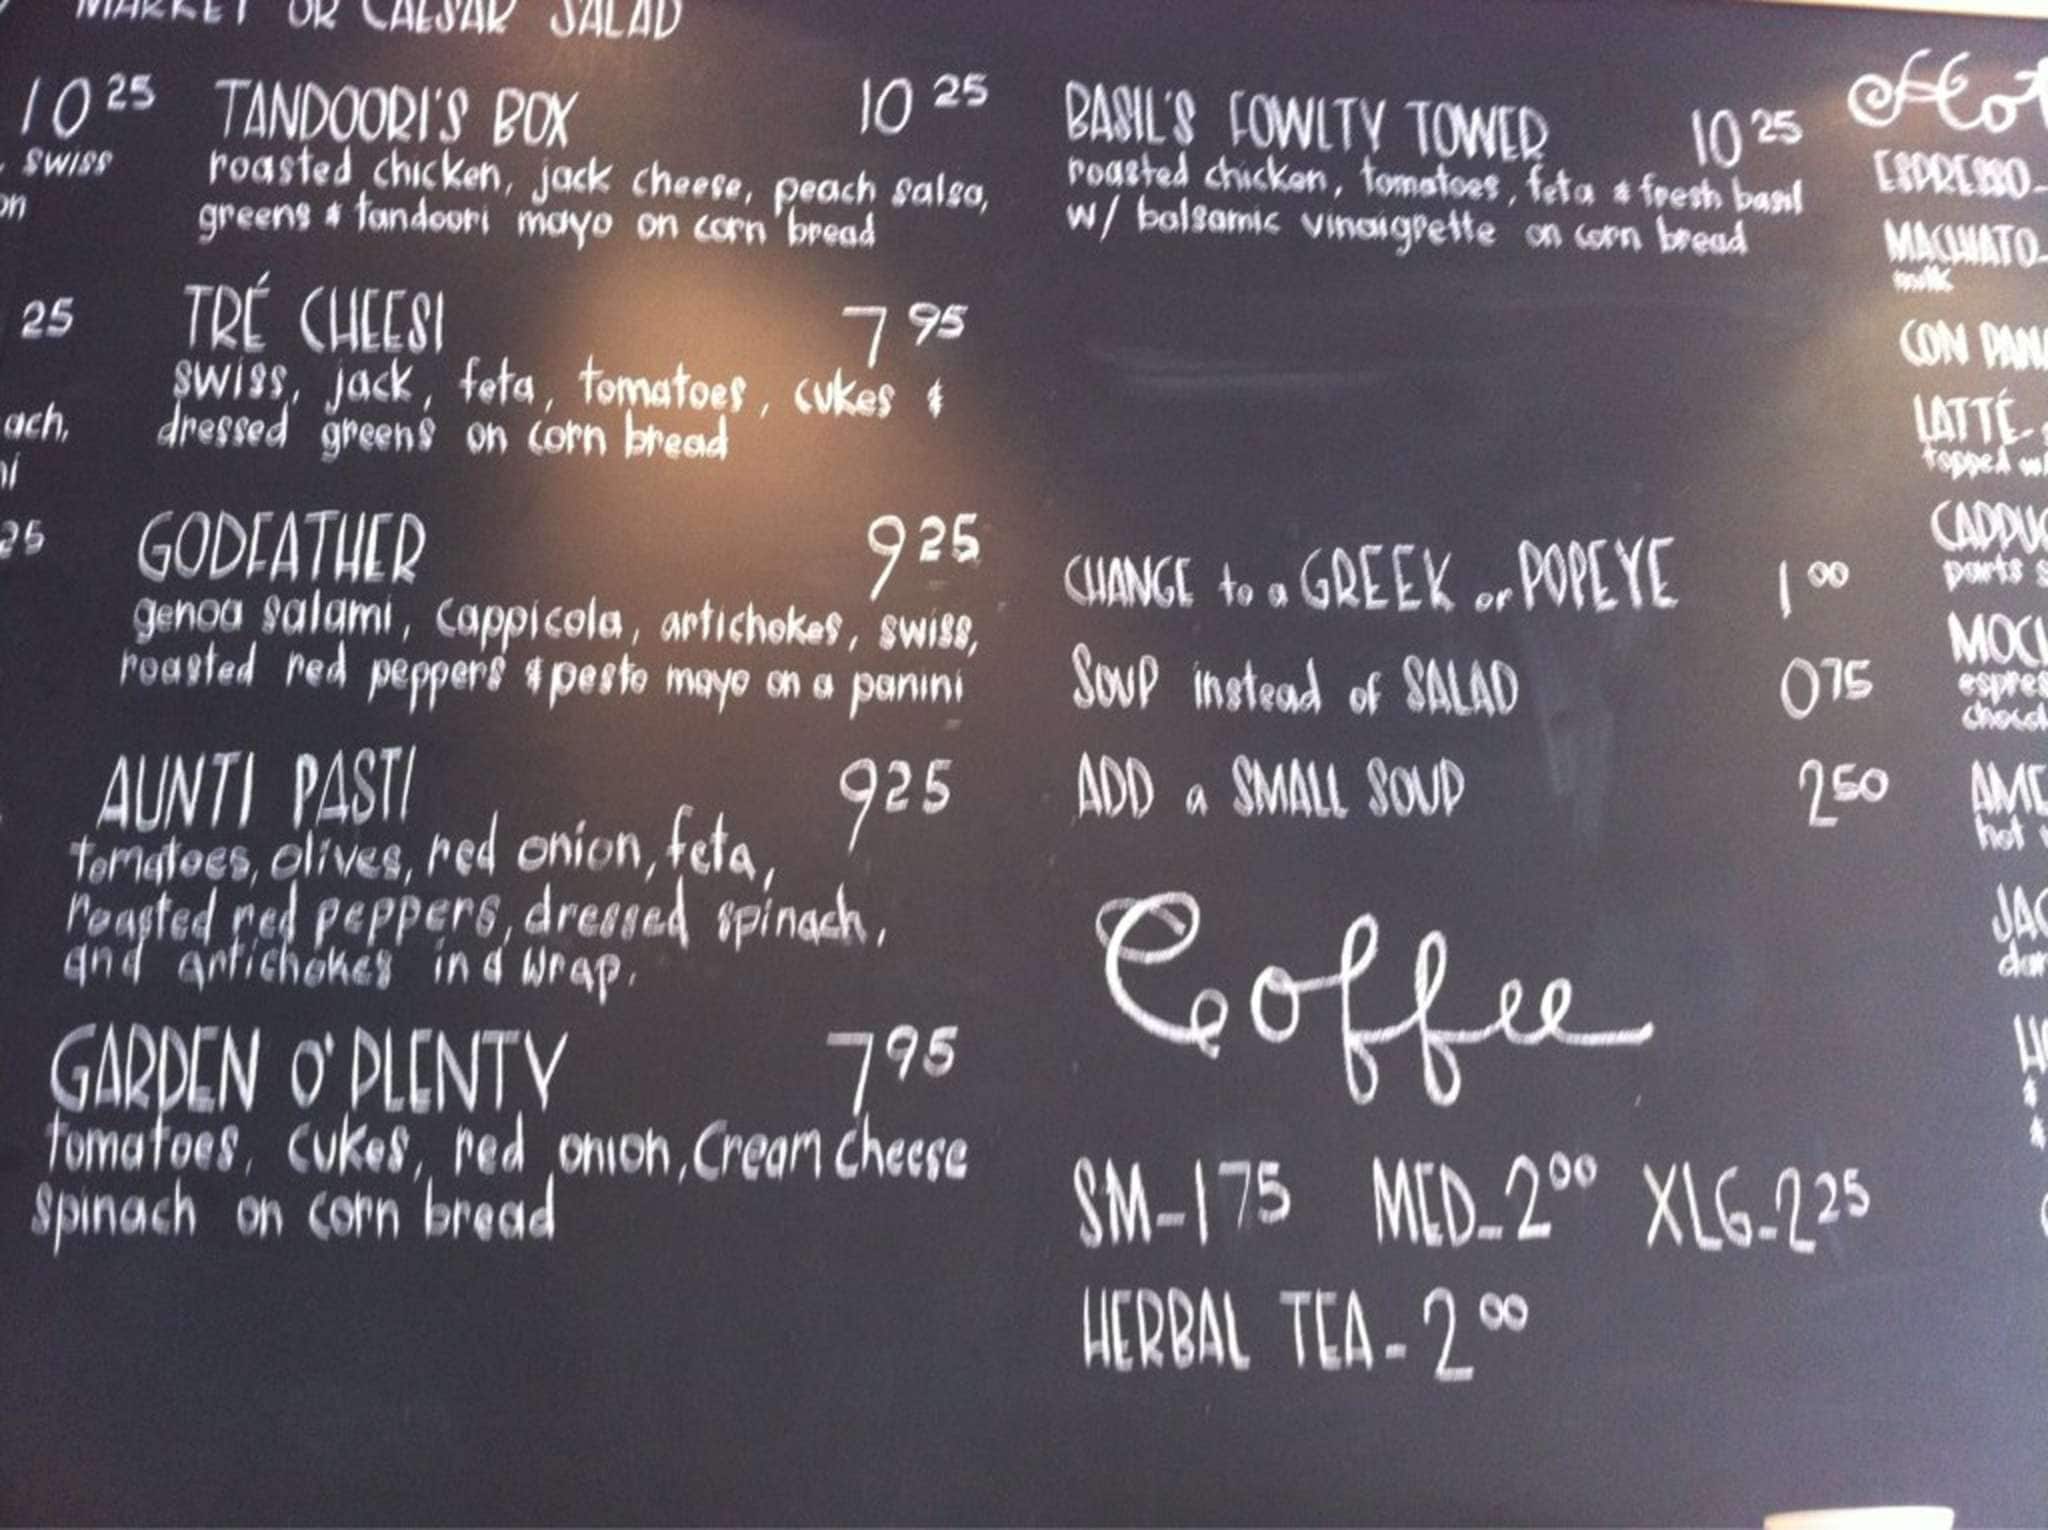 MARKET OR CAESAR SALAD
10 25
swiss
on
25
ach,
ni
25
TANDOORI'S BOX 10 25
roasted chicken, jack cheese, peach salsa,
greens & tandoori mayo on corn bread
TRÉ CHEESI 7 95
swiss, jack, feta, tomatoes, cukes &
dressed greens on corn bread
GODFATHER 9 25
genoa salami, cappicola, artichokes, swiss,
roasted red peppers & pesto mayo on a panini
AUNTI PASTI 9 25
tomatoes, olives, red onion, feta,
roasted red peppers, dressed spinach,
and artichokes in a wrap.
GARDEN O' PLENTY 7 95
tomatoes, cukes, red onion, cream cheese
spinach on corn bread
BASIL'S FOWLTY TOWER 10 25
roasted chicken, tomatoes, feta & fresh basil
w/ balsamic vinaigrette on corn bread
CHANGE to a GREEK or POPEYE 1 00
SOUP instead of SALAD 0 75
ADD a SMALL SOUP 2 50
Coffee
SM-1 75 MED-2 00 XLG-2 25
HERBAL TEA-2 00
Hot
ESPRESSO-
MACHIATO-
milk
CON PANA
LATTÉ-
topped w/
CAPPUC
parts s
MOCH
espres
chocol
AME
hot w
JAC
dar
HO
&
&